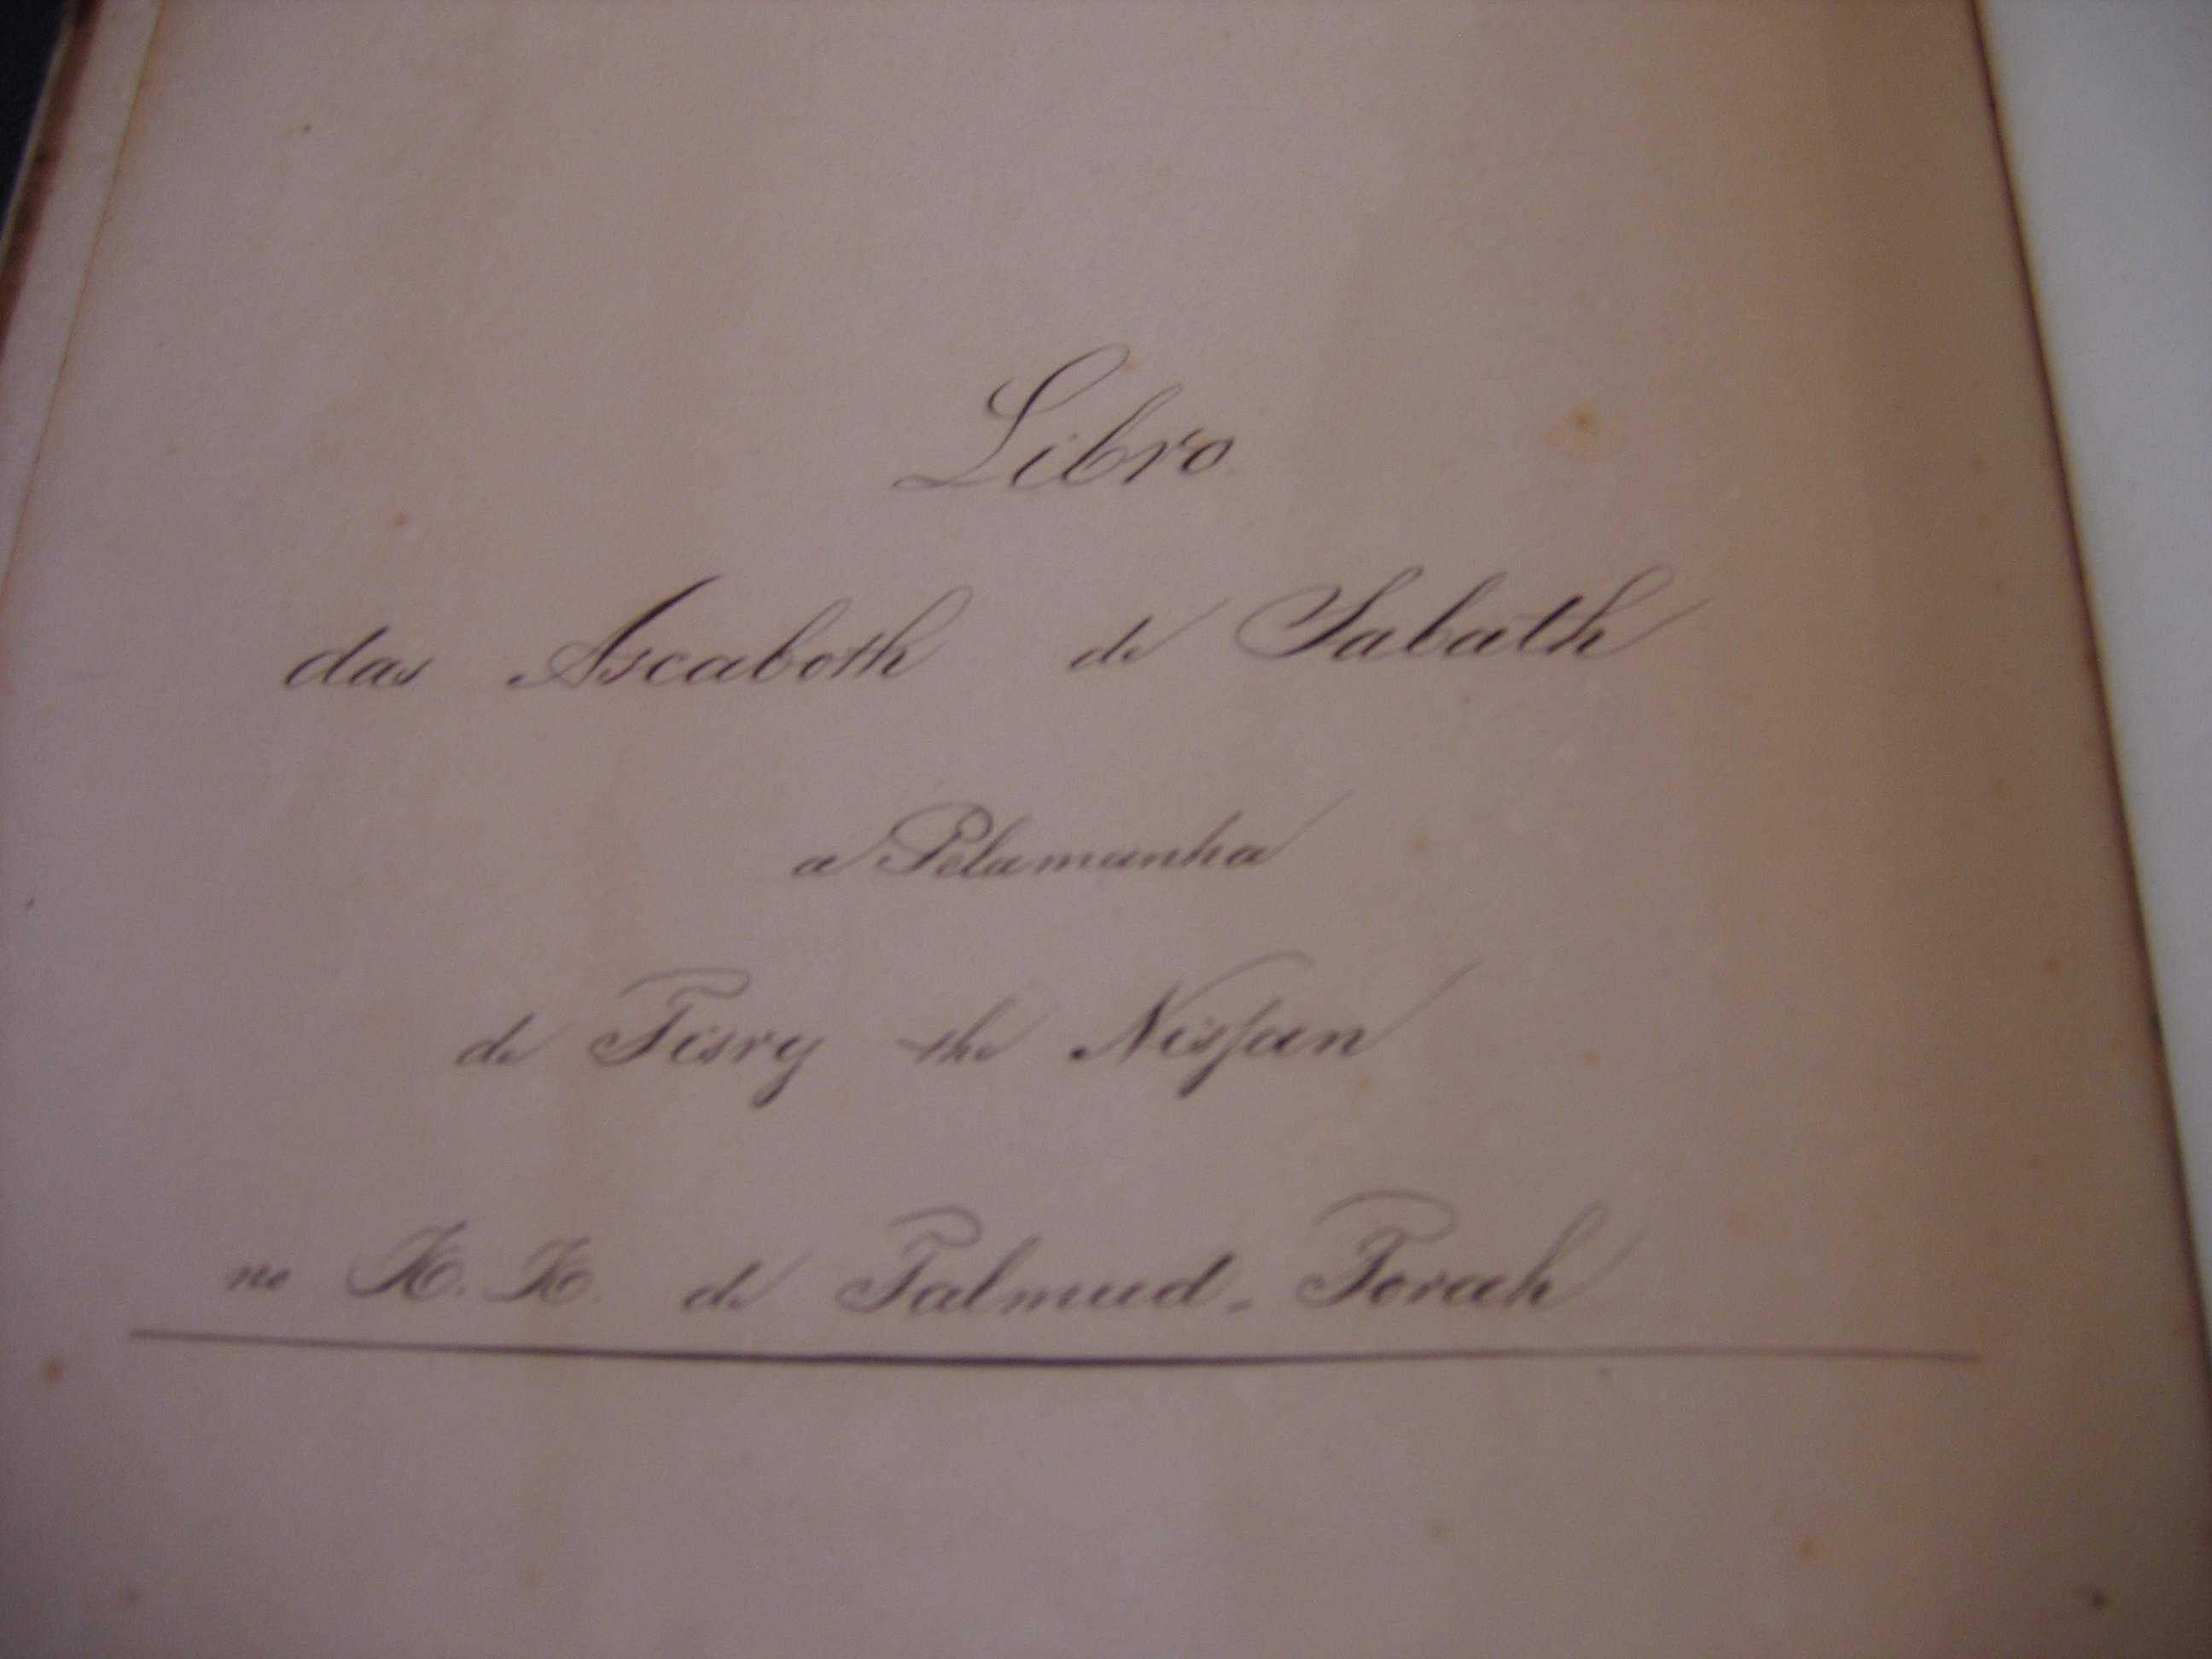 Libro
das Ascaboth de Sabath
a Pelamanha
de Tisry the Nisſan
no K. K. de Talmud-Torah